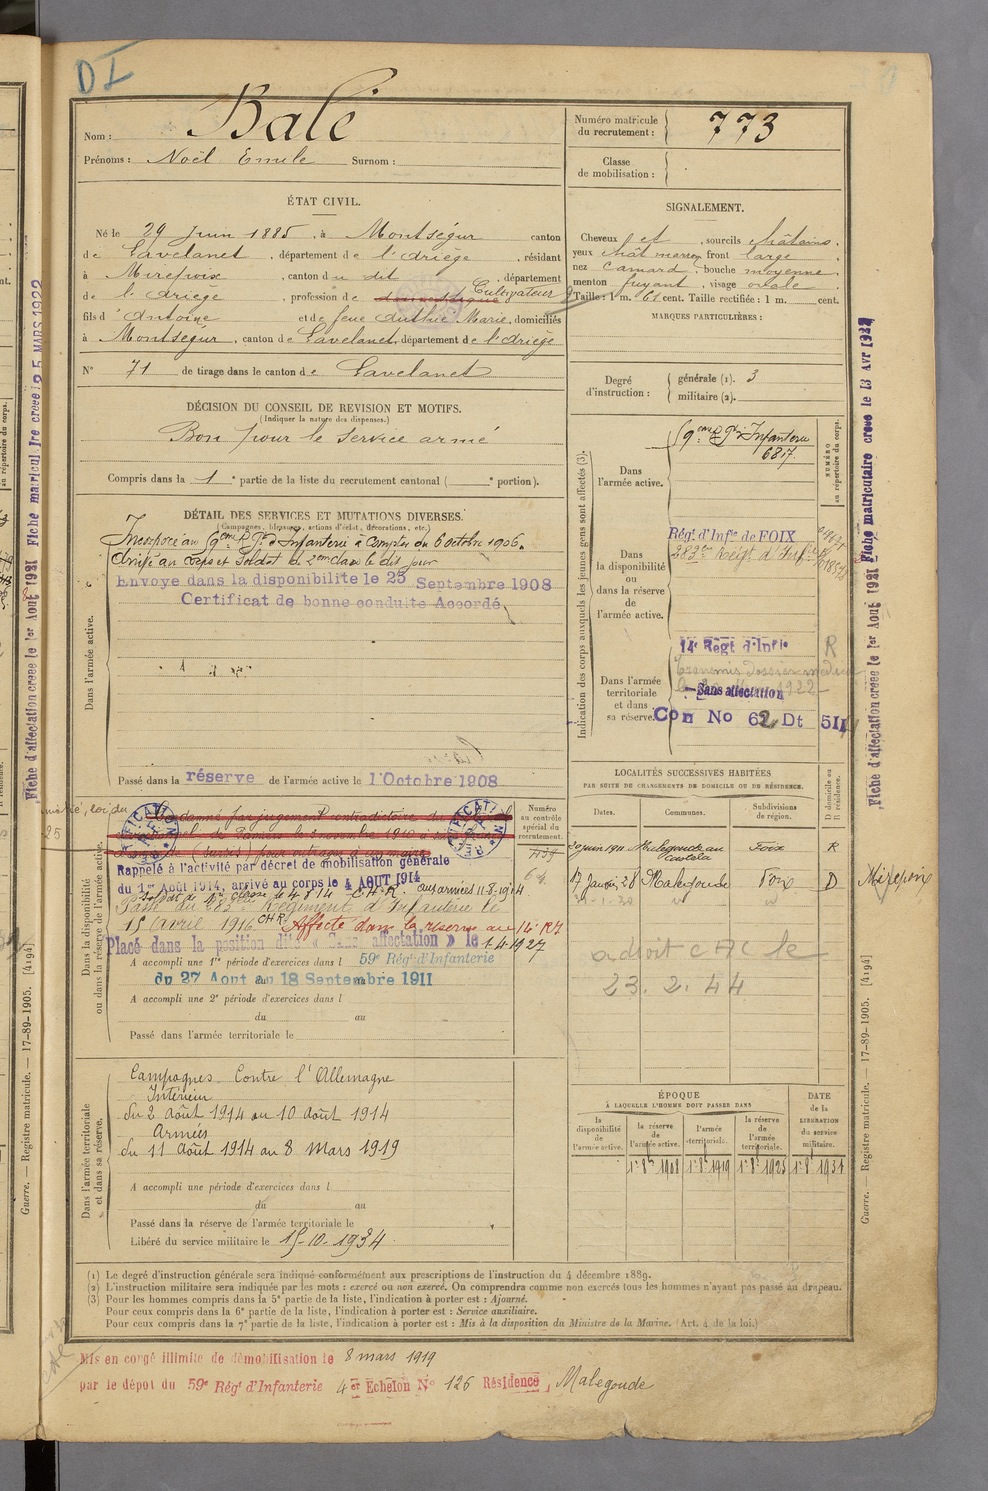 DI
Nom : Balé
Prénoms : Noël Emile Surnom :
Numéro matricule du recrutement : 773
Classe de mobilisation :
ÉTAT CIVIL.
Né le 29 Juin 1885, à Montségur canton
de Lavelanet, département de l'Ariège, résidant
à Mirepoix, canton du dit, département
de l'Ariège, profession de domestique Cultivateur
fils d'Antoine et de feue Authié Marie, domiciliés
à Montségur, canton de Lavelanet, département de l'Ariège
N° 71 de tirage dans le canton de Lavelanet
SIGNALEMENT.
Cheveux et, sourcils châtains.
yeux chât marron front large
nez camard, bouche moyenne.
menton fuyant, visage ovale.
Taille : 1 m. 61 cent. Taille rectifiée : 1 m. cent.
MARQUES PARTICULIÈRES :
Degré d'instruction : générale (1). 3
militaire (2).
DÉCISION DU CONSEIL DE REVISION ET MOTIFS.
(Indiquer la nature des dispenses.)
Bon pour le service armé
Compris dans la 1e partie de la liste du recrutement cantonal ( e portion).
DÉTAIL DES SERVICES ET MUTATIONS DIVERSES.
(Campagnes, blessures, actions d'éclat, décorations, etc.)
Dans l'armée active.
Incorporé au 9eme Rgt d'Infanterie à compter du 6 octobre 1906.
Arrivé au corps et soldat de 2eme classe le dit jour
Envoyé dans la disponibilité le 25 Septembre 1908
Certificat de bonne conduite Accordé
Passé dans la réserve de l'armée active le 1 Octobre 1908
Indication des corps auxquels les jeunes gens sont affectés (3).
NUMÉRO au répertoire du corps.
Dans l'armée active.
9eme Rgt d'Infanterie
6817.
Dans la disponibilité ou dans la réserve de l'armée active.
Régt d'Infie de FOIX
283e Régt d'Infie
Dans l'armée territoriale et dans sa réserve.
14e Régt d'Infie R
Transmis dossier médical
1922
Sans affectation
Con No 62 Dt 511
Dans la disponibilité ou dans la réserve de l'armée active.
Numéro au contrôle spécial du recrutement.
Condamné par jugement contradictoire du
de Pamiers le 8 novembre 1910 à
(sursis) pour outrages à un maire
Rappelé à l'activité par décret de mobilisation générale
du 1er Août 1914, arrivé au corps le 4 AOUT 1914
aux armées 11-8-1914
Passé du 283e Régiment d'Infanterie le
15 avril 1916 CHR. Affecté dans la réserve au 14e RI
Placé dans la position dite « Sans affectation » le 1-4-1927
A accompli une 1re période d'exercices dans l 59e Régt d'Infanterie
du 27 Aout au 18 Septembre 1911
A accompli une 2e période d'exercices dans l
du au
Passé dans l'armée territoriale le
LOCALITÉS SUCCESSIVES HABITÉES
PAR SUITE DE CHANGEMENTS DE DOMICILE OU DE RÉSIDENCE.
Dates. Communes. Subdivisions de région. D domicile ou R résidence.
20 juin 1911 Foix R
17 Janvier 28 Malegoude Foix D Mirepoix
a droit CAC le
23. 2. 44
Dans l'armée territoriale et dans sa réserve.
Campagnes Contre l'Allemagne
Intérieur
du 2 Août 1914 au 10 Août 1914
Armées
du 11 Août 1914 au 8 Mars 1919
A accompli une période d'exercices dans l
du au
Passé dans la réserve de l'armée territoriale le
Libéré du service militaire le 15-10-1934.
ÉPOQUE
À LAQUELLE L'HOMME DOIT PASSER DANS
DATE de la LIBÉRATION du service militaire.
la disponibilité de l'armée active.
la réserve de l'armée active.
l'armée territoriale.
la réserve de l'armée territoriale.
1er 8bre 1908 1er 8bre 1919 1er 8bre 1925 1er 8bre 1931
(1) Le degré d'instruction générale sera indiqué conformément aux prescriptions de l'instruction du 4 décembre 1889.
(2) L'instruction militaire sera indiquée par les mots : exercé ou non exercé. On comprendra comme non exercés tous les hommes n'ayant pas passé au drapeau.
(3) Pour les hommes compris dans la 5e partie de la liste, l'indication à porter est : Ajourné.
Pour ceux compris dans la 6e partie de la liste, l'indication à porter est : Service auxiliaire.
Pour ceux compris dans la 7e partie de la liste, l'indication à porter est : Mis à la disposition du Ministre de la Marine. (Art. 4 de la loi.)
Mis en congé illimité de démobilisation le 8 mars 1919
par le dépôt du 59e Régt d'Infanterie 4er Echelon N° 126 Résidence, Malegoude
Fiche d'affectation créée le 1er Août 1921 Fiche matricule créée le 25 MARS 1922
Guerre. — Registre matricule. — 17-89-1905. [4194]
Fiche d'affectation créée le 1er Août 1921 Fiche matriculaire créée le 13 Avr 1922
Guerre. — Registre matricule. — 17-89-1905. [4194]